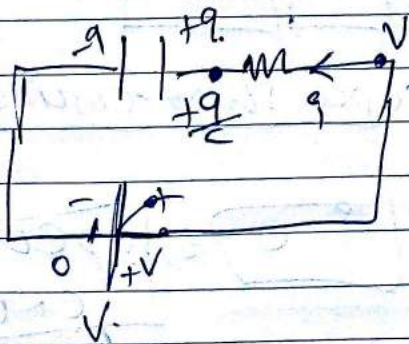 -q +q. V
+q/c q
- +
0 +V
V.